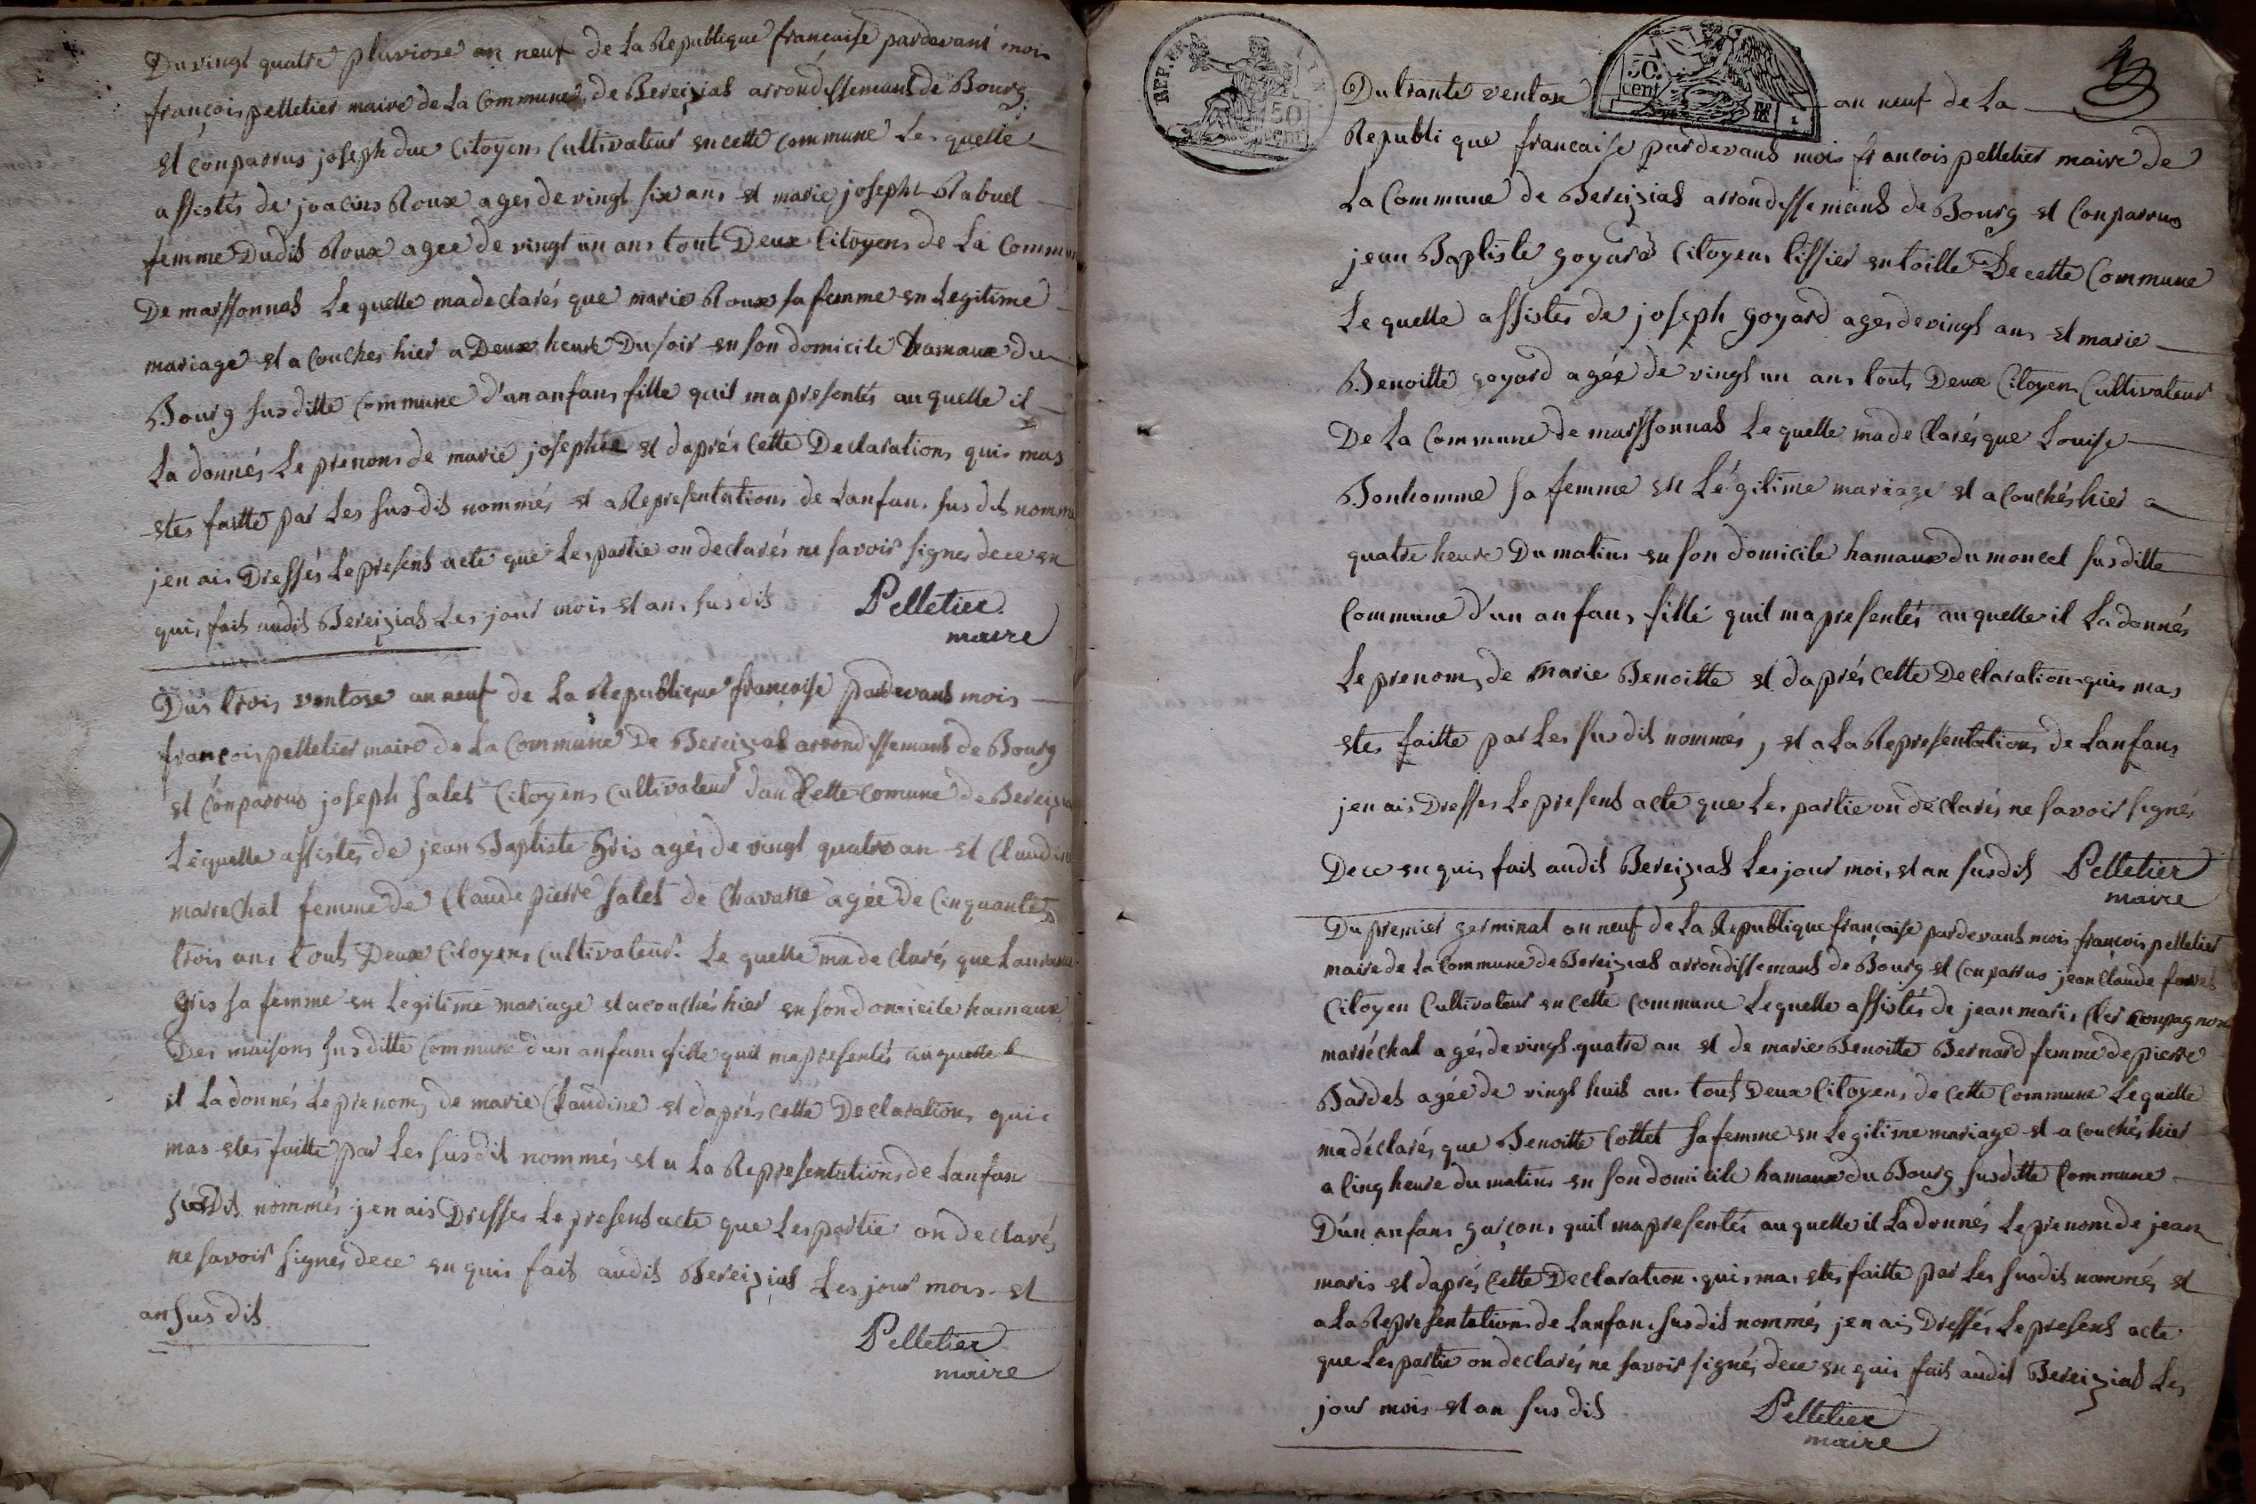 Du vingt quatre pluviose an neuf de la Republique francaise pardevant moi
françois pelletier maire de la Commune de Bereiziat arrondissemans de Bourg
et conparrus joseph duc Citoyens Cultivateur en cette commune Le quelle
assistés de joacins Roux ages de vingt six ans et marie joseph Rabuel
femme Dudit Roux agee de vingt un ans tout Deux Citoyens de La Commun
De marssonnas Le quelle ma declarés que marie Roux sa femme en Legitime
mariage et a Couches hier a Deux heure Du soir en son domicile hamaux du
Bourg susditte Commune d'un anfans fille quil ma presentés au quelle il
La donnés Le prenom de marie josephte et daprés Cette Declarations qui mas
etes faitte par Les susdit nommés et a Representations de Lanfans susdit nommé
jen ais Dressés Le presens acte que Les partie on declarés ne savoir signes dece en
qui fait audit Bereiziat Les jour mois et ans susdit Pelletier
maire
Dus trois ventose an neuf de La Republique françoise pardevans mois
francois pelletier maire de La Commune De Bereiziat arrondissemans de Bourg
et Conparrus joseph salet Citoyens Cultivateur dan Cette Comune de Bereizia
Lequelle assistés de jean Baptiste Gris agés de vingt quatre an et Claudine
marrechal femme de Claude pierre salet de Chavane agée de Cinquante
trois ans touts Deux Citoyens Cultivateur. Le quelle ma de Clarés que Laurence
Gris sa femme en Legitime mariage et a couchés hier en son domicile hamaux
Des maisons susditte Commune d'un anfans fille quil ma presentés au quelle
il La donnés Le prenom de marie Claudine et daprés Cette Declarations qui
mas etes faitte par Les susdit nommés et a La Representations de Lanfan
susdit nommés jen ais Dresses Le presens acte que Les partie on declarés
ne savoir signés dece en qui fait audit Bereiziat Les jour mois et
an susdit
Pelletier
maire
REP. FRA
50
cent
50.
cent
Du trante ventose an neuf de La
Republique francaise pardevans mois francois pelletier maire de
La Commune de Bereiziat arrondissemans de Bourg et Conparrus
jean Baptiste goyard Citoyens tissier en toille De cette Commune
Le quelle assistes de joseph goyard ages de vingt ans et marie
Benoitte goyard agée de vingt un ans touts Deux Citoyens Cultivateur
De La Commune de marssonnas Le quelle ma de Clarés que Louise
Bonhomme sa femme en Légitime mariage et a Couchés hier a
quatre heure Du matins en son domicile hamaux du moncel susditte
Commune d'un anfans fille quil ma presentés au quelle il La donnés
Le prenom de marie Benoitte et daprés Cette Declaration qui mas
etes faitte par Les susdit nommés, et a La Representations de Lanfans
jen ais Dresses Le presens acte que Les partie on déclarés ne savoir signés
Dece en qui fait audit Bereiziat Les jour mois et an susdit Pelletier
maire
Du premier germinal an neuf de La Republique française pardevans mois françois pelletier
maire de La Commune de Bereiziat arrondissemans de Bourg et Conparrus jean Claude
Citoyen Cultivateur en Cette Commune Le quelle assistés de jean marie Clerc Conpagnon
marréchal agés de vingt quatre an et de marie Benoitte Bernard femme de pierre
Bardet agée de vingt huit ans tout Deux Citoyens de Cette Commune Le quelle
ma déclarés que Benoitte Cottet sa femme en Legitime mariage et a Couchés hier
a Cinq heure du matins en son domicile hamaux Du Bourg susditte Commune
D'un anfans garçons quil ma presentés au quelle il La donnés Le prenom de jean
maris et daprés Cette Declaration qui mas etes faitte par Les susdit nommés et
a La Representations de Lanfans susdit nommés jen ais Dressés Le presens acte
que Les partie on declarés ne savoir signés dece en qui fait audit Bereiziat Les
jour mois et an susdit Pelletier
maire